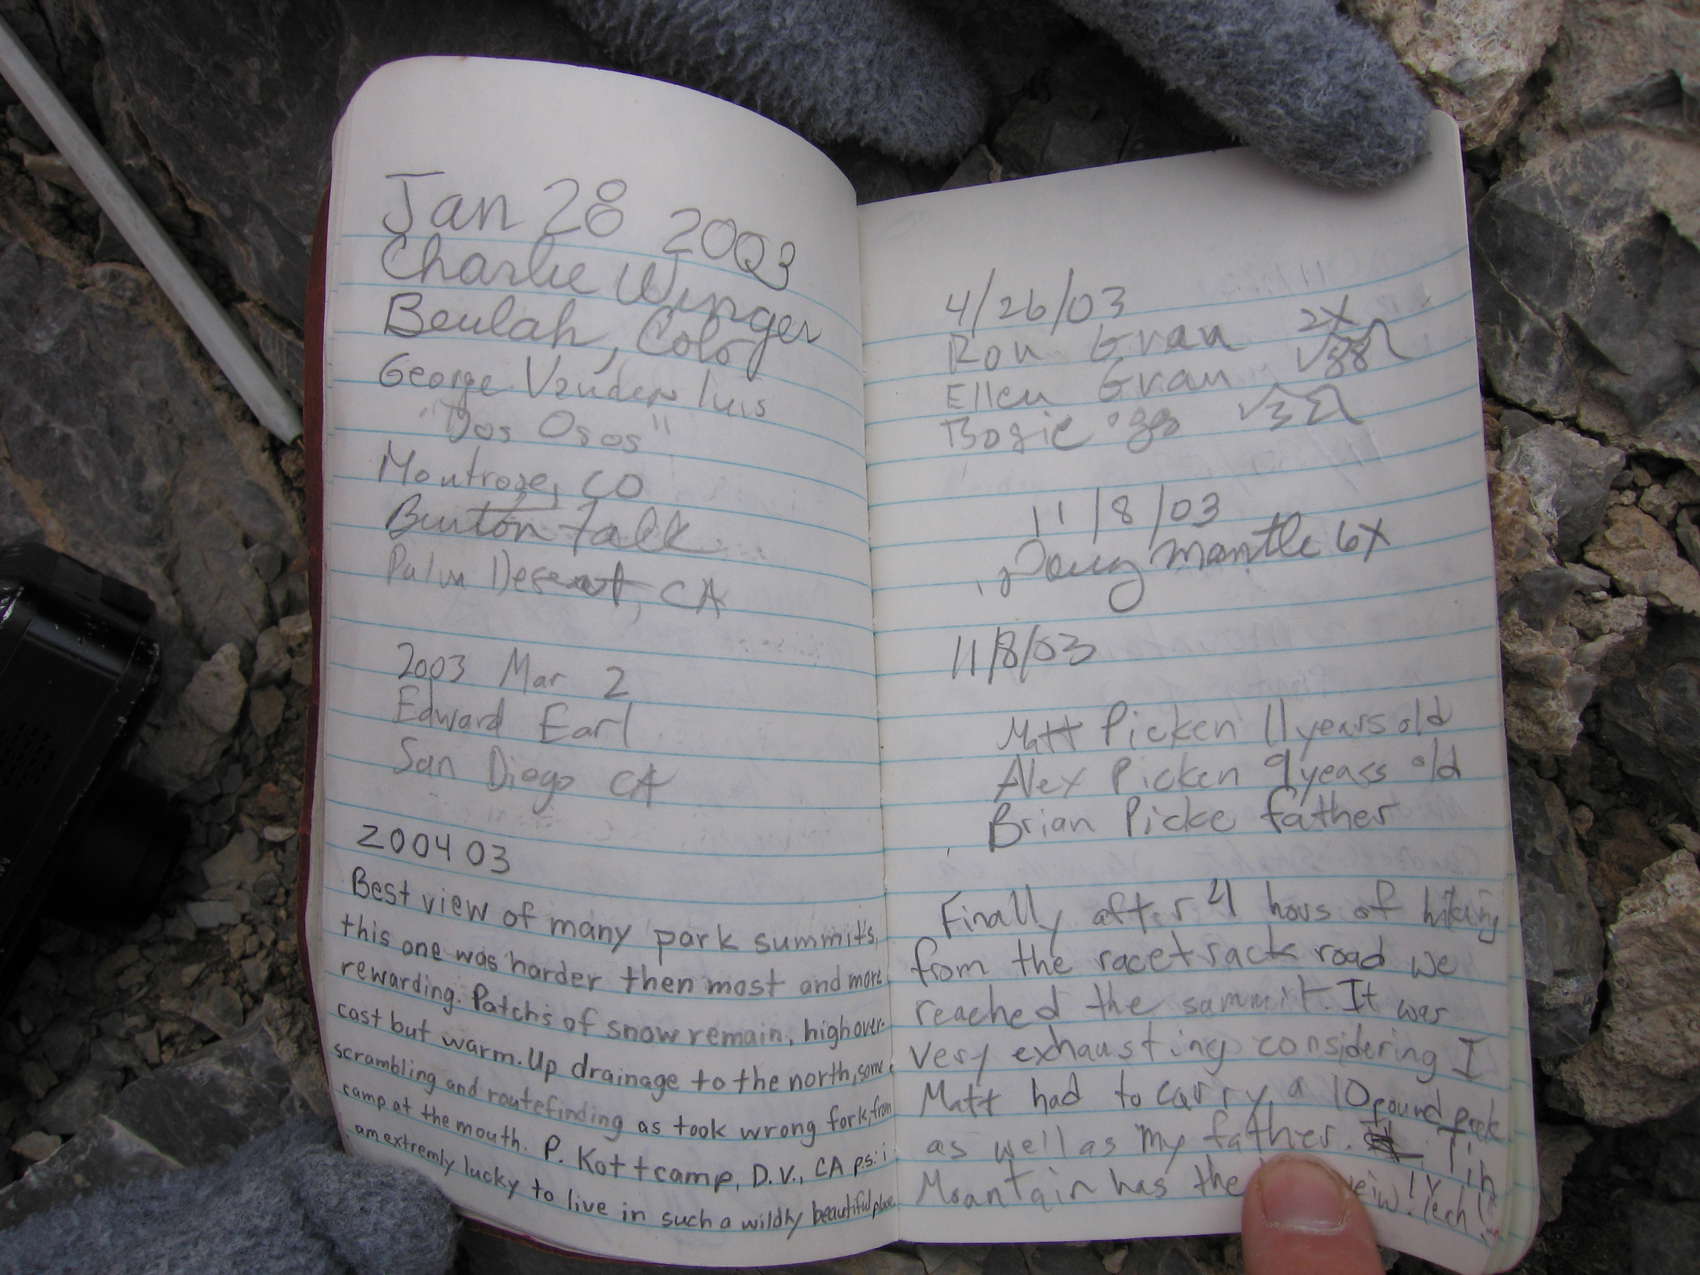 Jan 28 2003
Charlie Winger
Beulah, Colo
George Vandersluis
"Dos Osos"
Montrose, CO
Burton Falk
Palm Desert, CA
2003 Mar 2
Edward Earl
San Diego CA
2004 03
Best view of many park summits,
this one was harder then most and more
rewarding. Patchs of snow remain, high over-
cast but warm. Up drainage to the north, some
scrambling and routefinding as took wrong fork, from
camp at the mouth. P. Kottcamp, D.V., CA p.s: i
am extremly lucky to live in such a wildly beautiful place
4/26/03
Ron Gran 2X
Ellen Gran
Bogie
11/8/03
Doug Mantle 6X
11/8/03
Matt Picken 11 years old
Alex Picken 9 years old
Brian Picke father
Finally after 4 hours of hiking
from the racetrack road we
reached the summit. It was
very exhausting considering I
Matt had to carry a 10 pound pack
as well as my father. Tin
Mountain has the veiw!